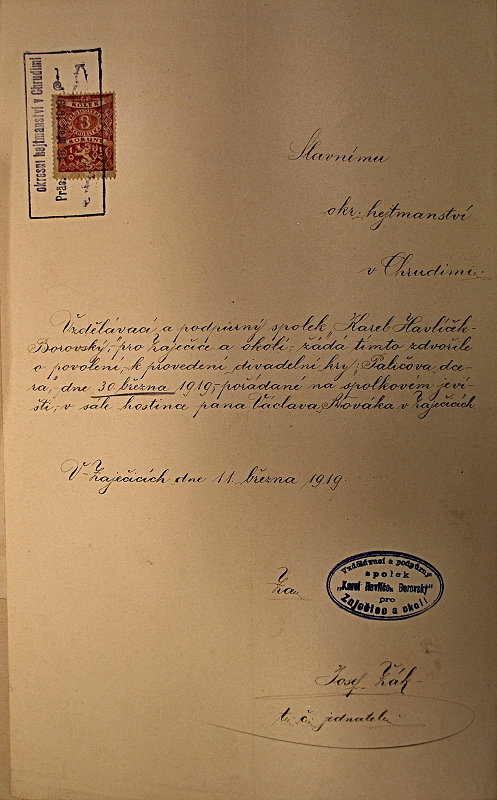 okresní hejtmanství v Chrudimi
Präs.
KOLEK
3
KORUNY
Slavnému
okr. hejtmanství
v Chrudimi.
Vzdělávací a podpůrný spolek „Karel Havlíček-
Borovský,“ pro Zaječice a okolí, žádá tímto zdvořile
o povolení, k provedení divadelní hry, „Paličova dce-
ra,“ dne 30. března 1919, pořádané na spolkovém jevi-
šti, v sále hostince pana Václava Nováka v Zaječicích
V Zaječicích dne 11. března 1919.
Za
Vzdělávací a podpůrný
spolek
„Karel Havlíček Borovský“
pro
Zaječice a okolí
Josef Žák
t. č. jednatel.